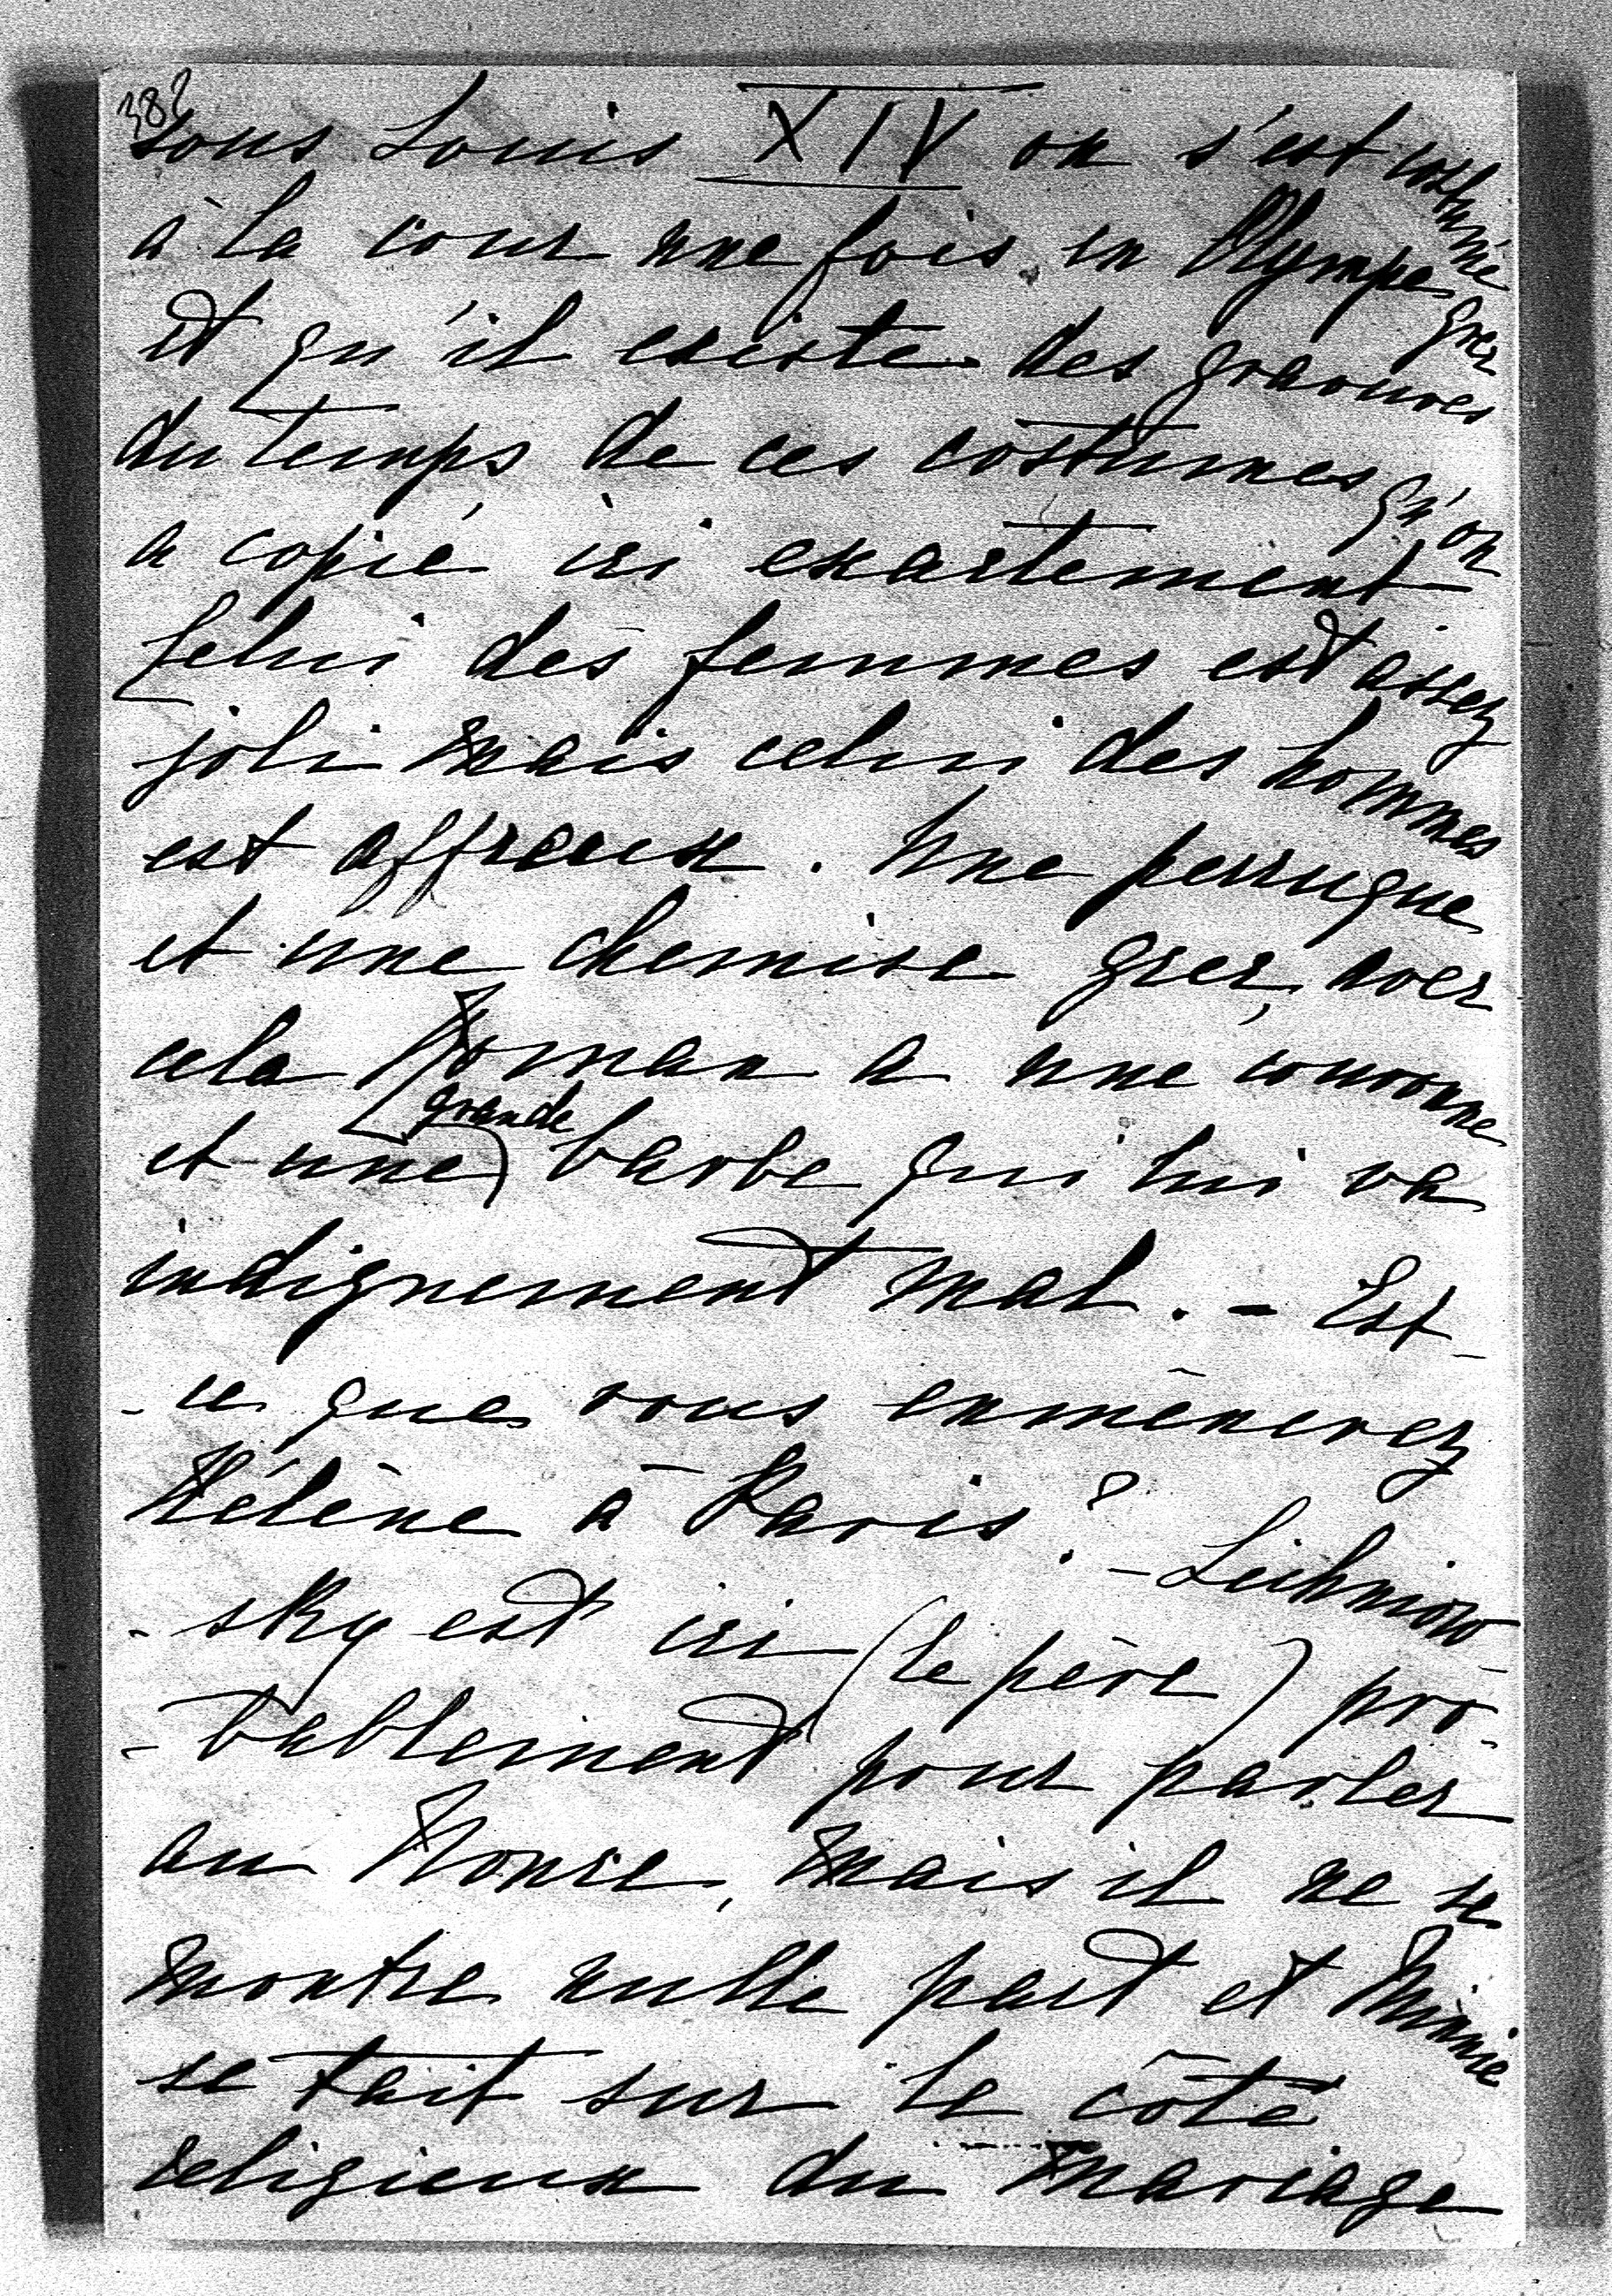 382
sous Louis XIV on s'est costumé
à la cour une fois en Olympe grec
et qu'il existe des gravures
du temps de ces costumes qu'on
a copié ici exactement
Celui des femmes est assez
joli mais celui des hommes
est affreux. Une perruque
et une chemise grec, avec
cela Roman a une couronne
et une grande barbe qui lui va
indignement mal. - Est-
-ce que vous emmènerez
Hélène à Paris? - Lichnow-
-sky est ici (le père) pro-
-bablement pour parler
au Nonce, mais il ne se
montre nulle part et Mimie
se tait sur le côté
religieux du mariage